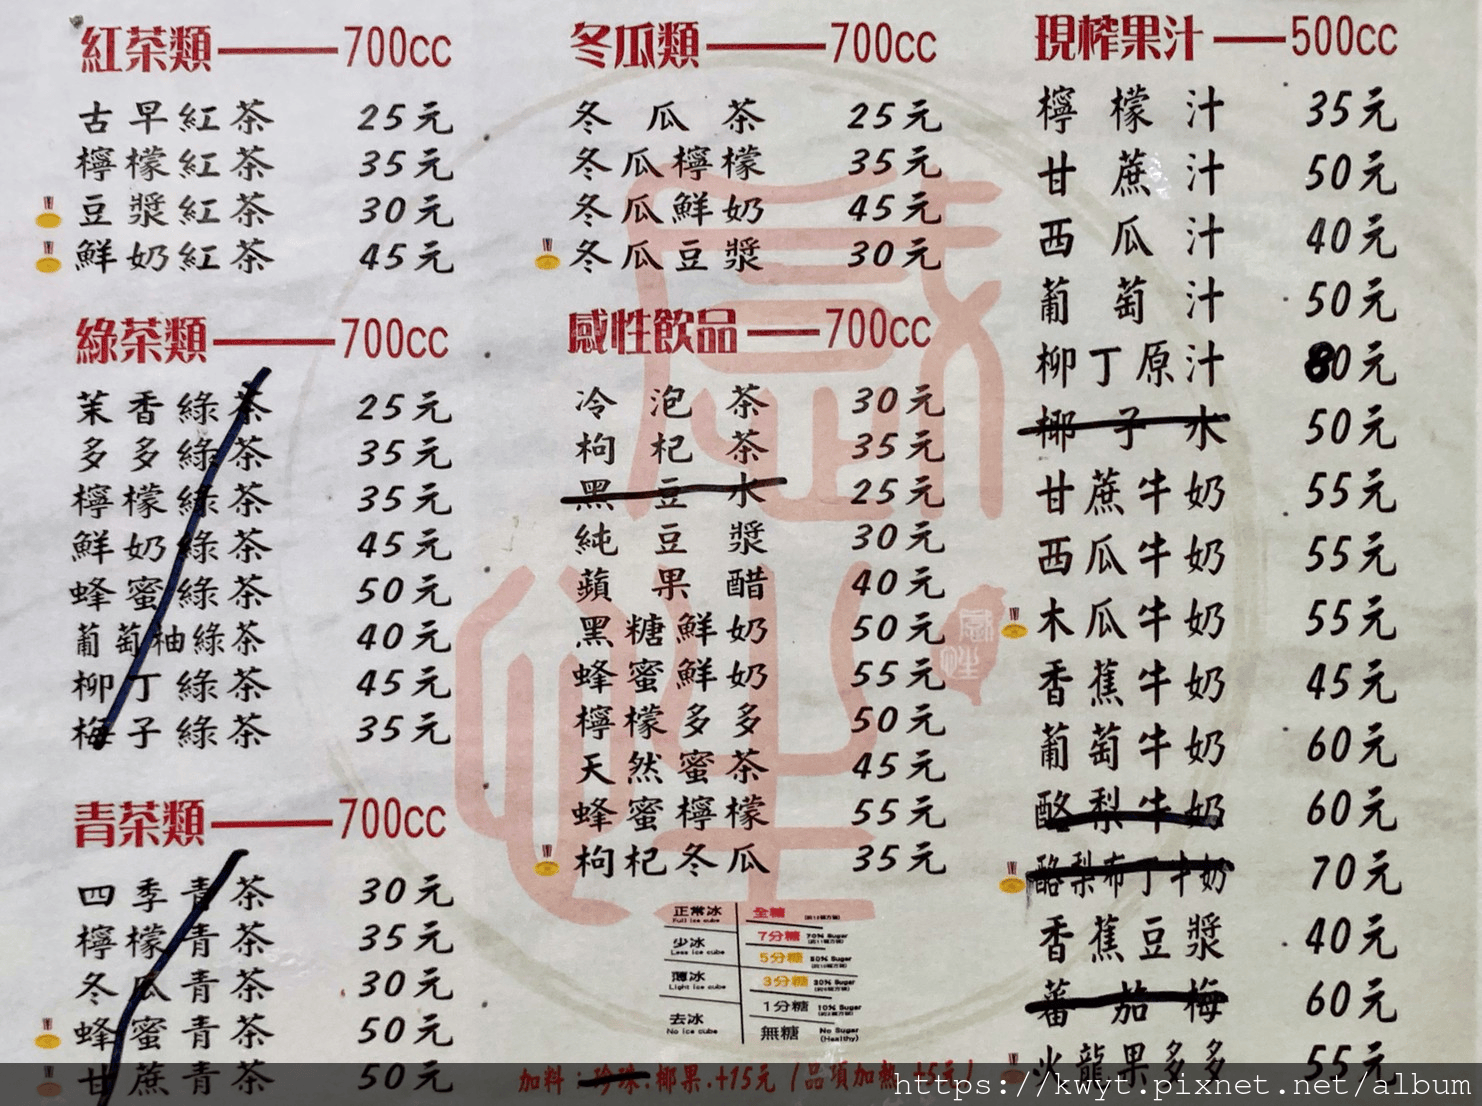 紅茶類 700cc
古早紅茶 25元
檸檬紅茶 35元
豆漿紅茶 30元
鮮奶紅茶 45元
綠茶類 700cc
茉香綠茶 25元
多多綠茶 35元
檸檬綠茶 35元
鮮奶綠茶 45元
蜂蜜綠茶 50元
葡萄柚綠茶 40元
柳丁綠茶 45元
梅子綠茶 35元
青茶類 700cc
四季青茶 30元
檸檬青茶 35元
冬瓜青茶 30元
蜂蜜青茶 50元
甘蔗青茶 50元
冬瓜類 700cc
冬瓜茶 25元
冬瓜檸檬 35元
冬瓜鮮奶 45元
冬瓜豆漿 30元
感性飲品 700cc
冷泡茶 30元
枸杞茶 35元
黑豆水 25元
純豆漿 30元
蘋果醋 40元
黑糖鮮奶 50元
蜂蜜鮮奶 55元
檸檬多多 50元
天然蜜茶 45元
蜂蜜檸檬 55元
枸杞冬瓜 35元
正常冰
Full ice cube
少冰
Less ice cube
薄冰
Light ice cube
去冰
No ice cube
全糖
7分糖 70% Sugar
5分糖 50% Sugar
3分糖 30% Sugar
1分糖 10% Sugar
無糖 No Sugar
(Healthy)
加料:珍珠.椰果.+15元 (品項加熱+5元)
現榨果汁 500cc
檸檬汁 35元
甘蔗汁 50元
西瓜汁 40元
葡萄汁 50元
柳丁原汁 80元
椰子水 50元
甘蔗牛奶 55元
西瓜牛奶 55元
木瓜牛奶 55元
香蕉牛奶 45元
葡萄牛奶 60元
酪梨牛奶 60元
酪梨布丁牛奶 70元
香蕉豆漿 40元
蕃茄梅 60元
火龍果多多 55元
感性
https://kwyt.pixnet.net/album